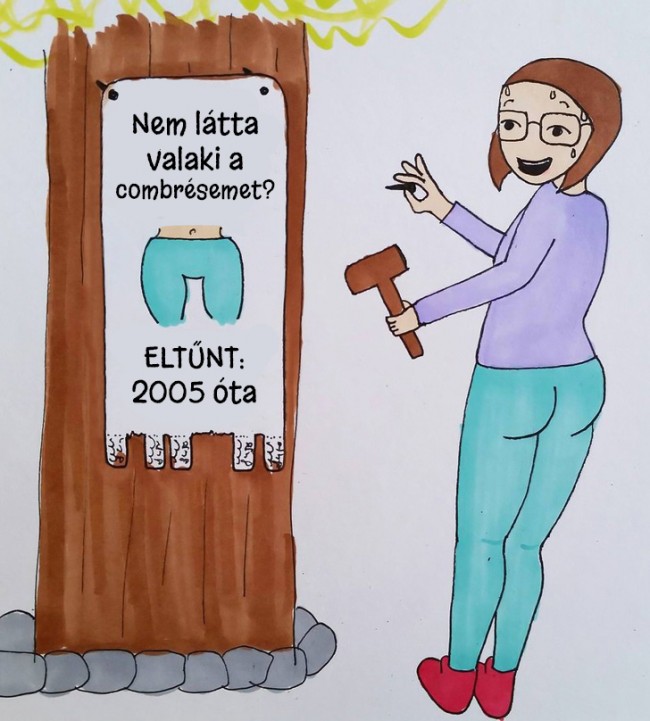 Nem látta
valaki a
combrésemet?
ELTŰNT:
2005 óta